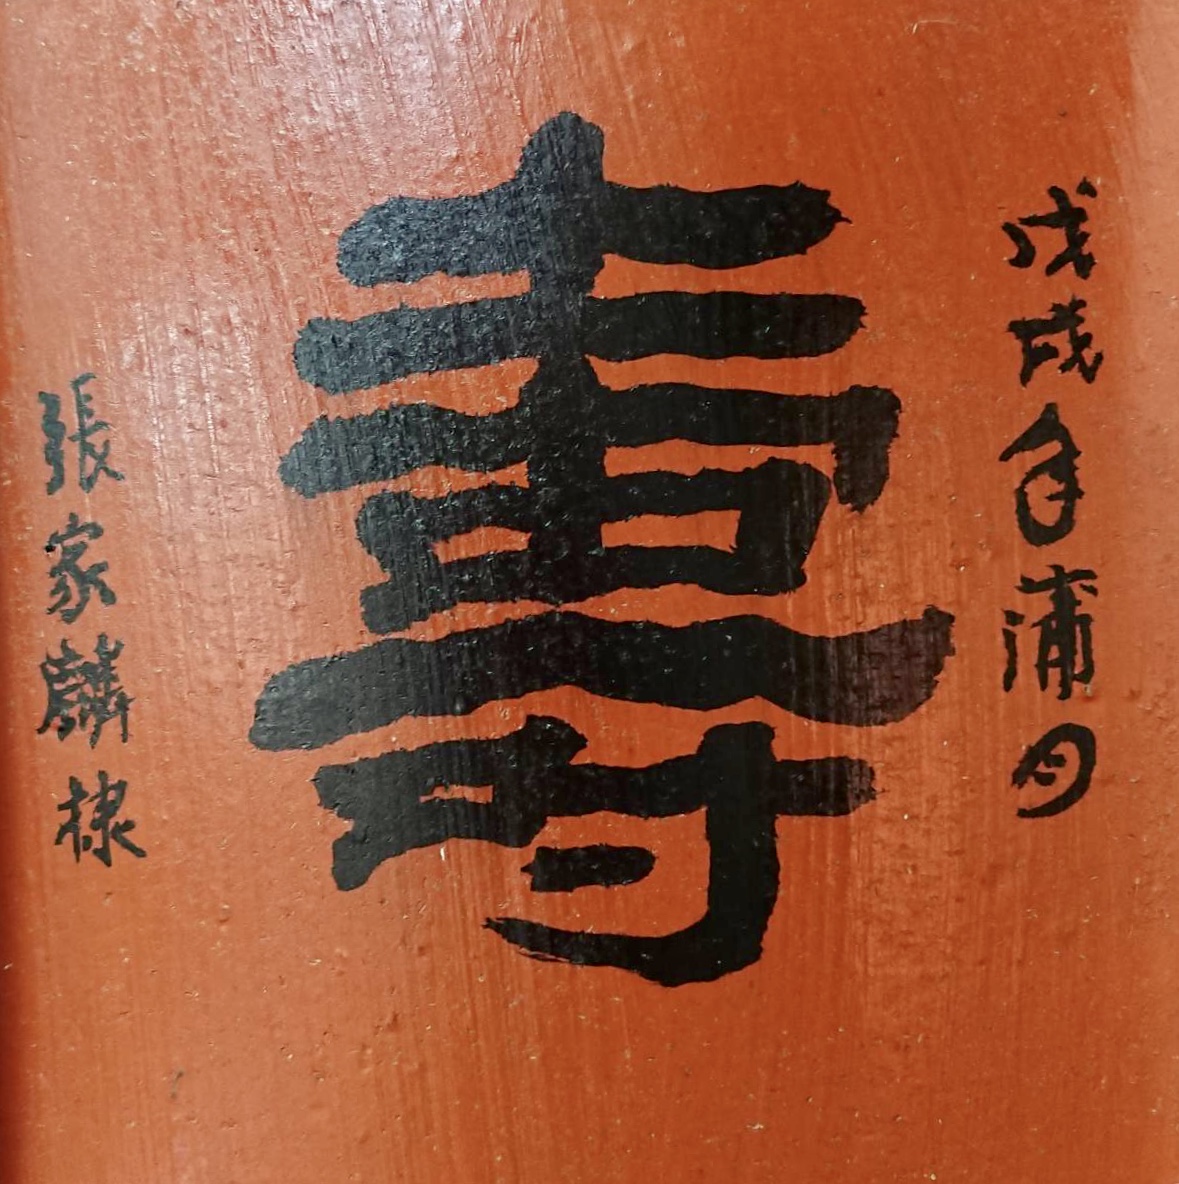 戊戌年蒲月
壽
張家麟棣